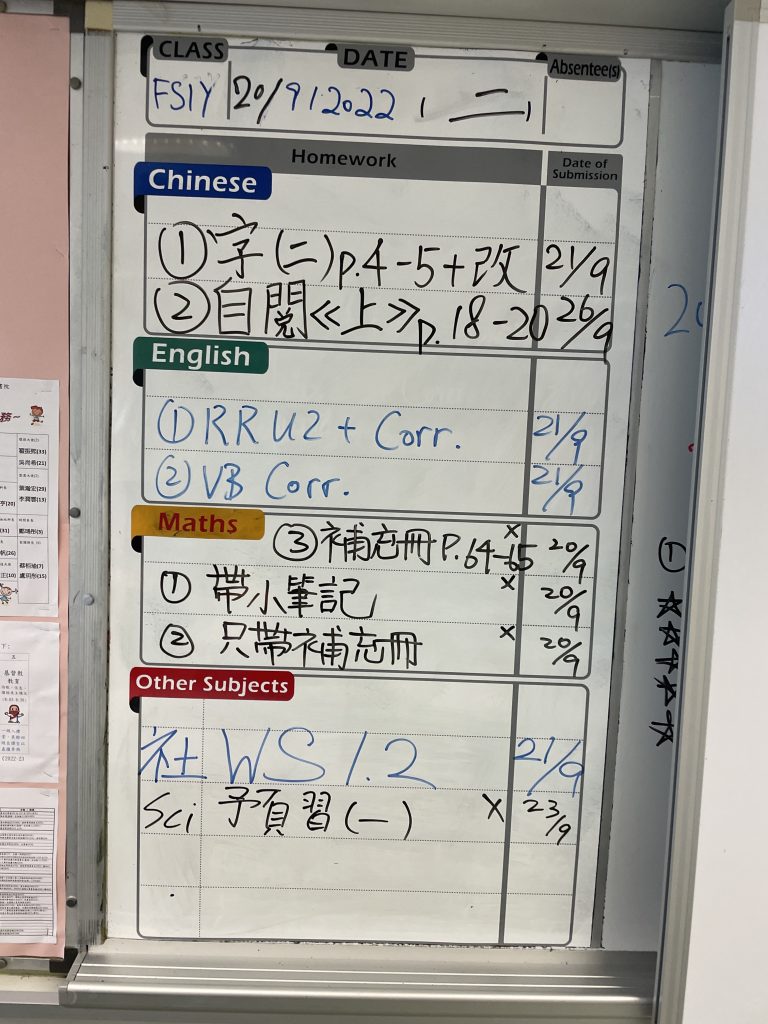 CLASS DATE Absentee(s)
FS1Y 20/9/2022 (二)
Homework Date of Submission
Chinese
① 字(二)p.4-5+改 21/9
② 自閱《上》p.18-20 26/9
English
① RR U2 + Corr. 21/9
② VB Corr. 21/9
Maths
③ 補充冊 P.64-65 x 20/9
① 帶小筆記 x 20/9
② 只帶補充冊 x 20/9
Other Subjects
社 WS 1.2 21/9
Sci 預習(一) x 23/9
①
務~
基督教
教育
(2022-23)